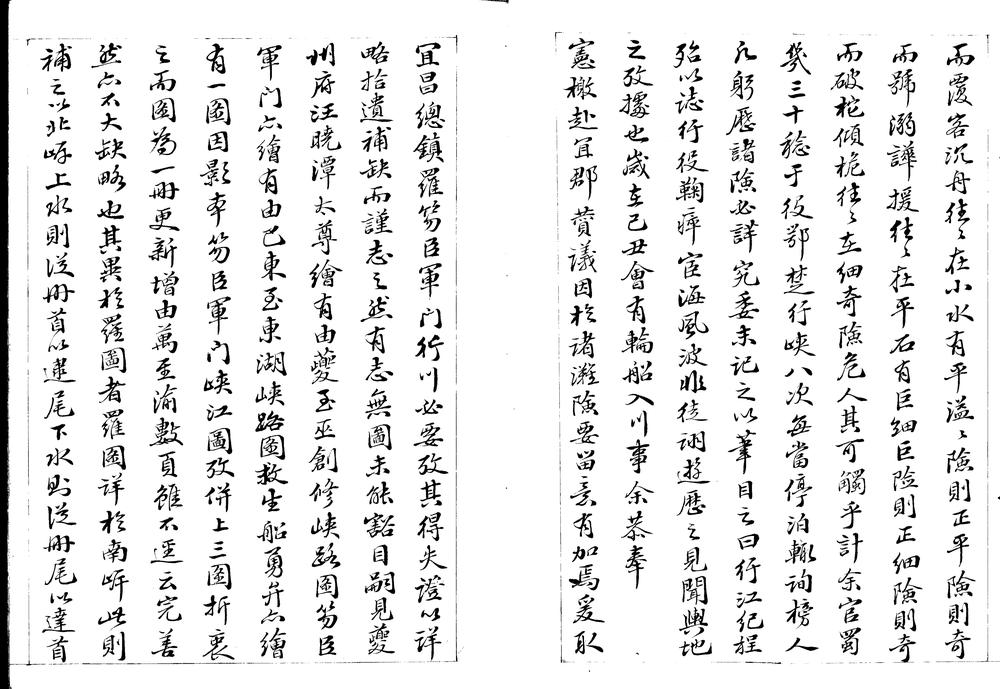 而覆客沉舟往〻在小水有平溢〻險則正平險則奇
而號溺譁援往〻在平石有巨細巨險則正細險則奇
而破柁傾桅往〻在細奇險危人其可觸乎計余官蜀
幾三十稔于役鄂楚行峽八次每當停泊輙詢榜人
凡躬歷諸險必詳究委末記之以筆目之曰行江紀程
殆以誌行役鞠瘁宦海風波非徒詡遊歷之見聞輿地
之攷據也歲在己丑會有輪船入川事余恭奉
憲檄赴宜郡賛議因於諸灘險要留意有加焉爰取
宜昌總鎮羅笏臣軍門行川必要攷其得失證以詳
略拾遺補缺而謹志之然有志無圖未能豁目嗣見夔
州府汪曉潭太尊繪有由夔至巫創修峽路圖笏臣
軍門亦繪有由巴東至東湖峽路圖救生船勇弁亦繪
有一圖因影本笏臣軍門峽江圖攷併上三圖折衷
之而圖為一冊更新增由萬至渝數頁雖不逕云完善
然亦不大缺略也其異於羅圖者羅圖詳於南岍此則
補之以北岍上水則從冊首以逮尾下水則從冊尾以達首